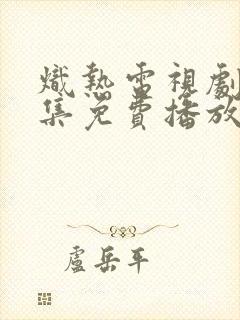 熾熱電視劇
集免費播放
盧岳平